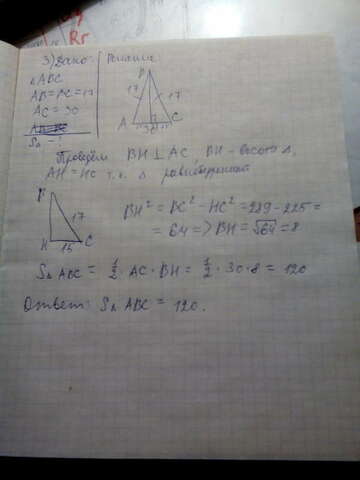 3) Дано:
Решение
△ABC
AB=BC=17
AC=30
S△ - ?
B
17 17
A H C
30
Проведём BH ⊥ AC, BH - высота △,
AH = HC т.к. △ равнобедренный
B
17
H 15 C
BH² = BC² - HC² = 289 - 225 =
= 64 => BH = √64 = 8
S△ABC = 1/2 · AC · BH = 1/2 · 30 · 8 = 120
Ответ: S△ABC = 120.